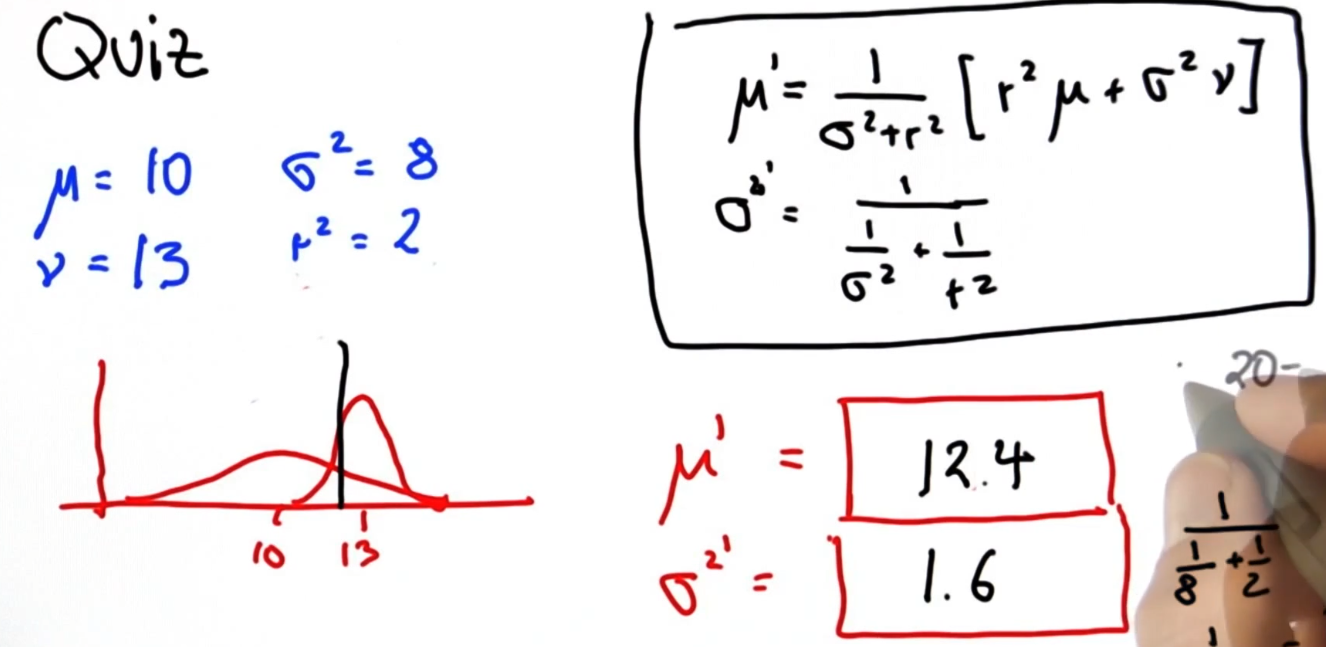 Quiz
μ = 10 σ² = 8
ν = 13 r² = 2
μ' = 1/(σ²+r²) [r²μ + σ²ν]
σ²' = 1/(1/σ² + 1/r²)
10 13
20-
μ' = 12.4
σ²' = 1.6
1/(1/8 + 1/2)
1